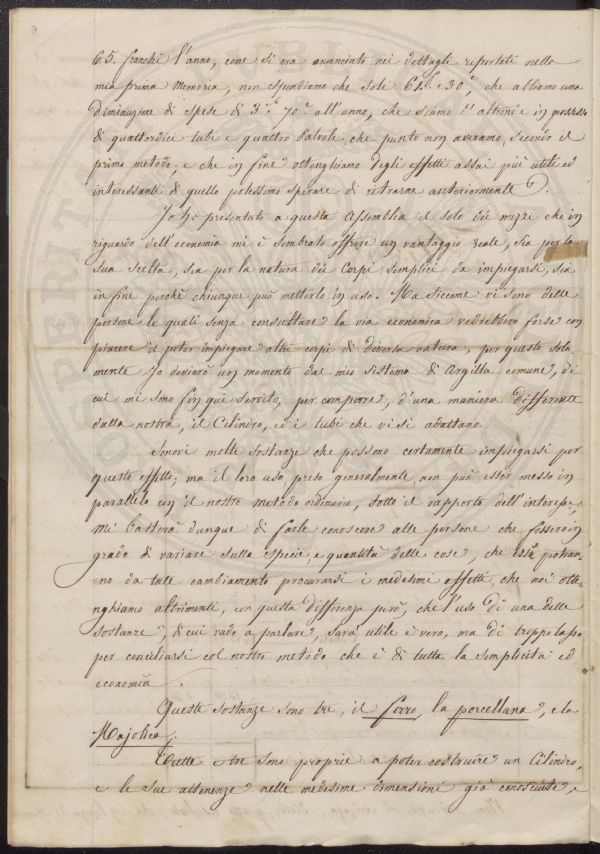 65. franchi l'anno, come si era anunciato nei dettagli riportati nella
mia prima Memoria, non spendiamo che soli 61.f e 30.c, che abbiamo una
diminuzione di spese di 3.f 70.c all'anno, che siamo d'altronde in possesso
di quattordici tubi e quattro Valvole, che punto non avevamo, secondo il
primo metodo, e che in fine ottenghiamo degli effetti assai più utili ed
interessanti di quello potessimo sperare di ritrarne anteriormente.
Io ho presentato a questa Assemblia il solo dei mezzi che in
riguardo dell'economia mi è sembrato offrire un vantaggio reale, sia per la
sua scelta, sia per la natura dei Corpi semplici da impiegarsi, sia
in fine perchè chiunque può metterlo in uso. Ma siccome vi sono delle
persone le quali senza consultare la via economica vedrebbero forse con
piacere il poter impiegare altri corpi di diversa natura, per questo sola-
mente Io devierò un momento dal mio sistema di Argilla comune, di
cui mi sono fin qui servito, per comporre, d'una maniera differente
dalla nostra, il Cilindro, ed i tubi che vi si adattano.
Sonovi molte sostanze che possono certamente impiegarsi per
questo effetto; ma il loro uso preso generalmente, non può esser messo in
parallelo con il nostro metodo ordinario, sotto il rapporto dell'interesse.
Mi basterà dunque di farle conoscere alle persone che fossero in
grado di variare sulla specie, e quantità delle cose, che esse potran-
=no da tale cambiamento procurarsi i medesimi effetti, che noi otte-
nghiamo altrimenti, con questa differenza però, che l'uso di una delle
sostanze, di cui vado a parlare, sarà utile è vero, ma di troppo lusso
per conciliarsi col nostro metodo che è di tutta la semplicità ed
economia.
Queste sostanze sono tre, il ferro, la porcellana, e la
Majolica.
Tutte e tre sono proprie a poter costruire un Cilindro,
e le sue attenenze nelle medesime dimensioni già conosciute, e